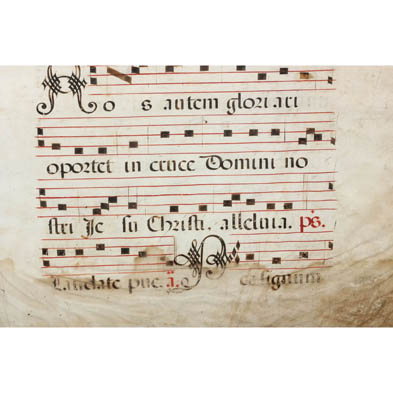 Nos autem gloriari
oportet in cruce Domini no
stri Je su Christi. alleluia. ps.
Laudate pue. a. Hoc signum